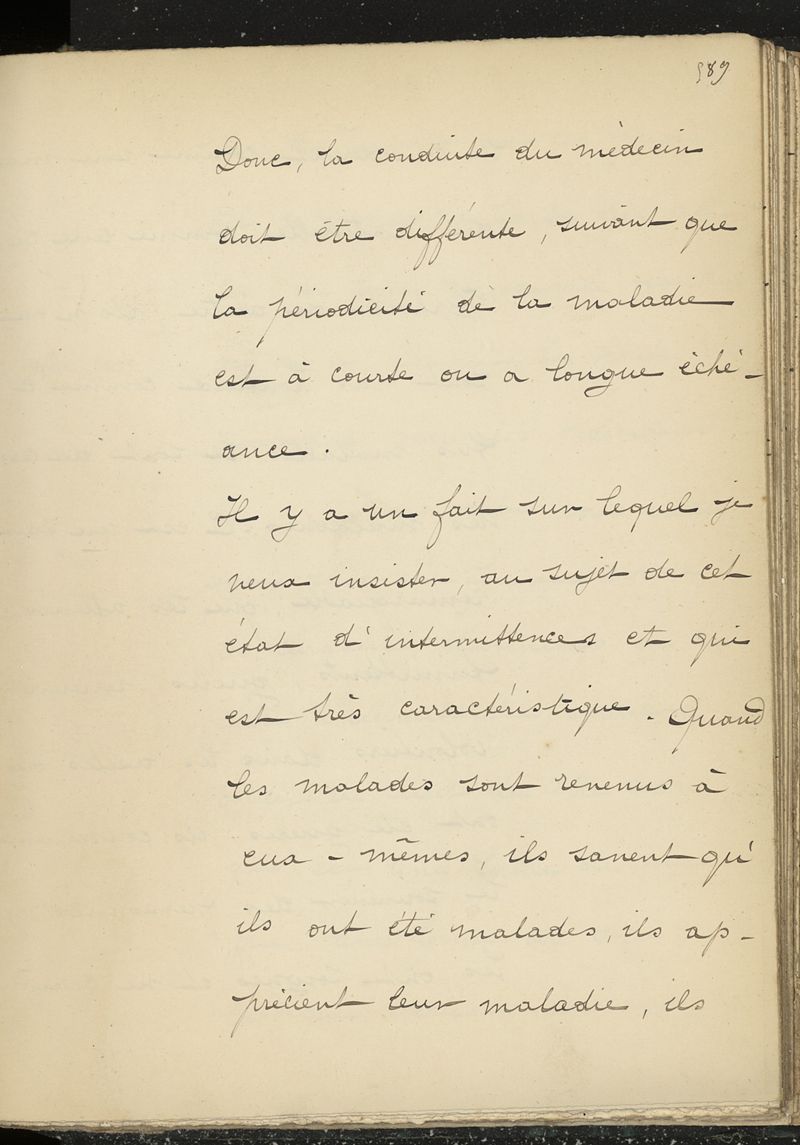 589
Donc, la conduite du médecin
doit être différente, suivant que
la périodicité de la maladie
est à courte ou a longue éché-
ance.
Il y a un fait sur lequel je
veux insister, au sujet de cet
état d'intermittences et qui
est très caractéristique. Quand
les malades sont revenus à
eux-mêmes, ils savent qu'
ils ont été malades, ils ap-
précient leur maladie, ils